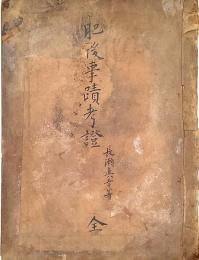 肥後事蹟考證
長瀬真幸著
全